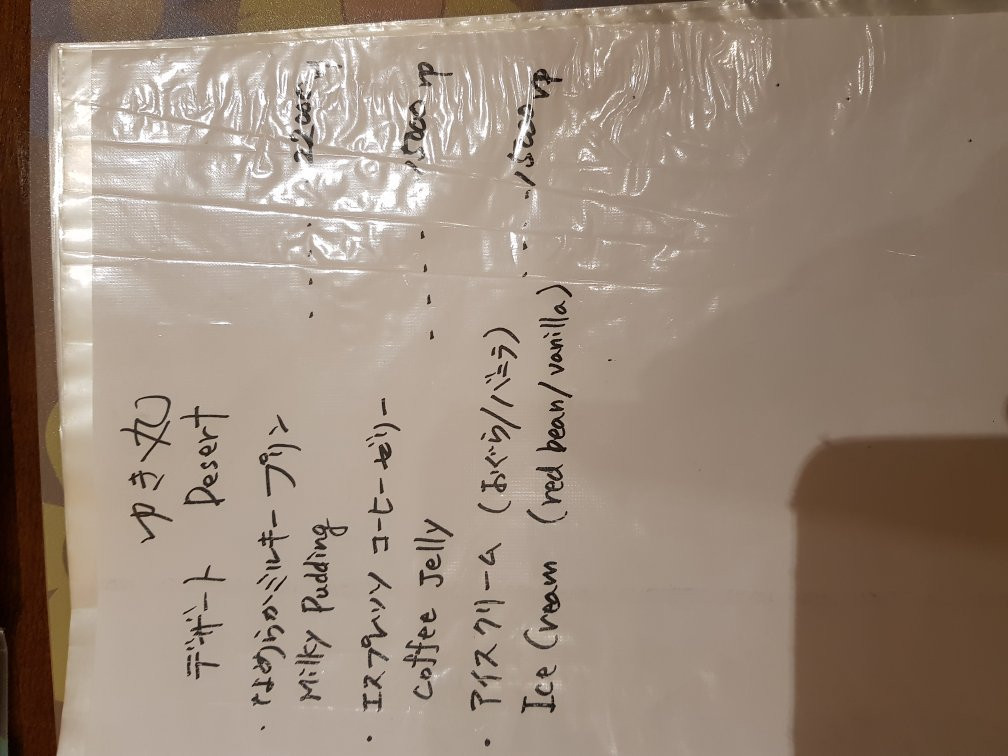 ゆき丸
デザート Desert
・なめらかミルキープリン
Milky Pudding ・・・・ 22000
・エスプレッソ コーヒーゼリー
Coffee Jelly ・・・・ 15000 rp
・アイスクリーム (おぐら/バニラ)
Ice Cream (red bean/vanilla) ・・・・ 15000 rp